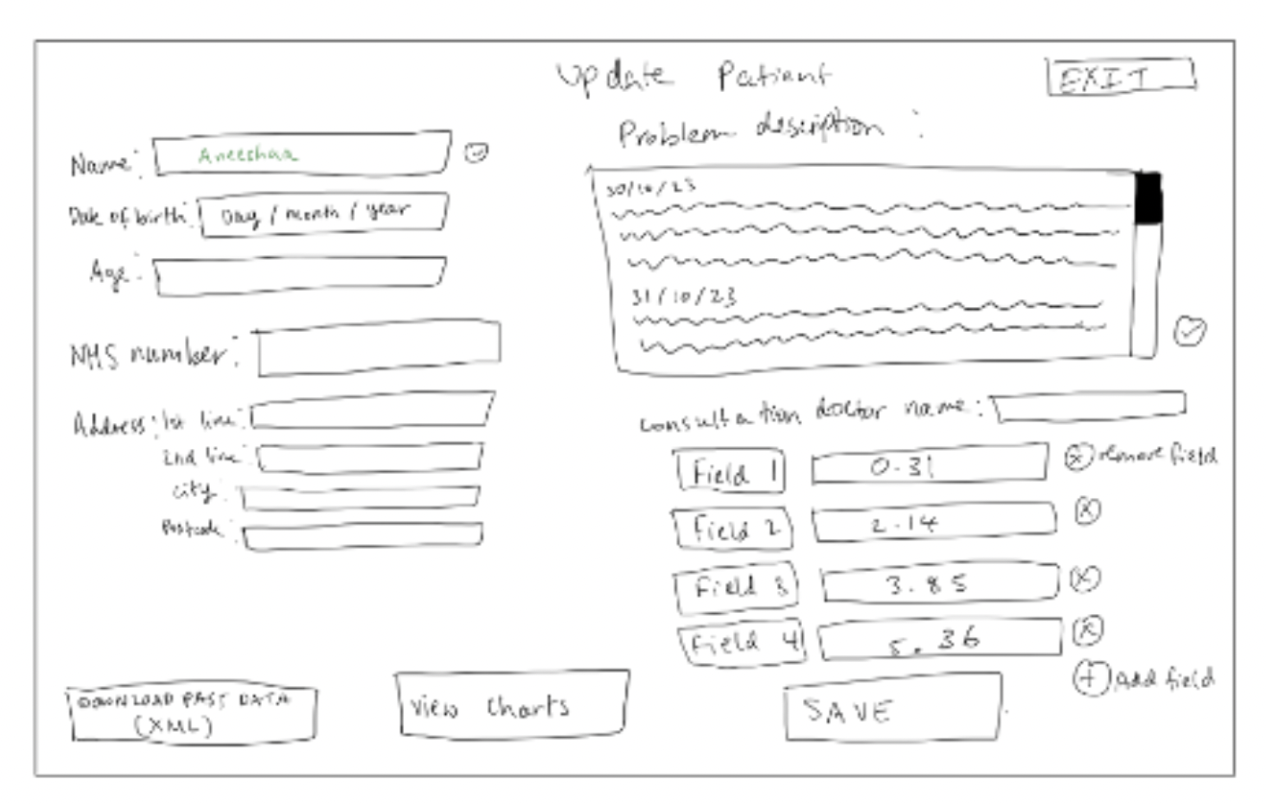 Update Patient
EXIT
Name: Aneeshaa
Date of birth: Day / month / year
Age:
NHS number:
Address: 1st line:
2nd line:
city:
Postcode:
Problem description :
30/10/23
31/10/23
consultation doctor name:
Field 1 0.31 remove field
Field 2 2.14
Field 3 3.85
Field 4 5.36
Add field
DOWNLOAD PAST DATA
(XML)
View Charts
SAVE